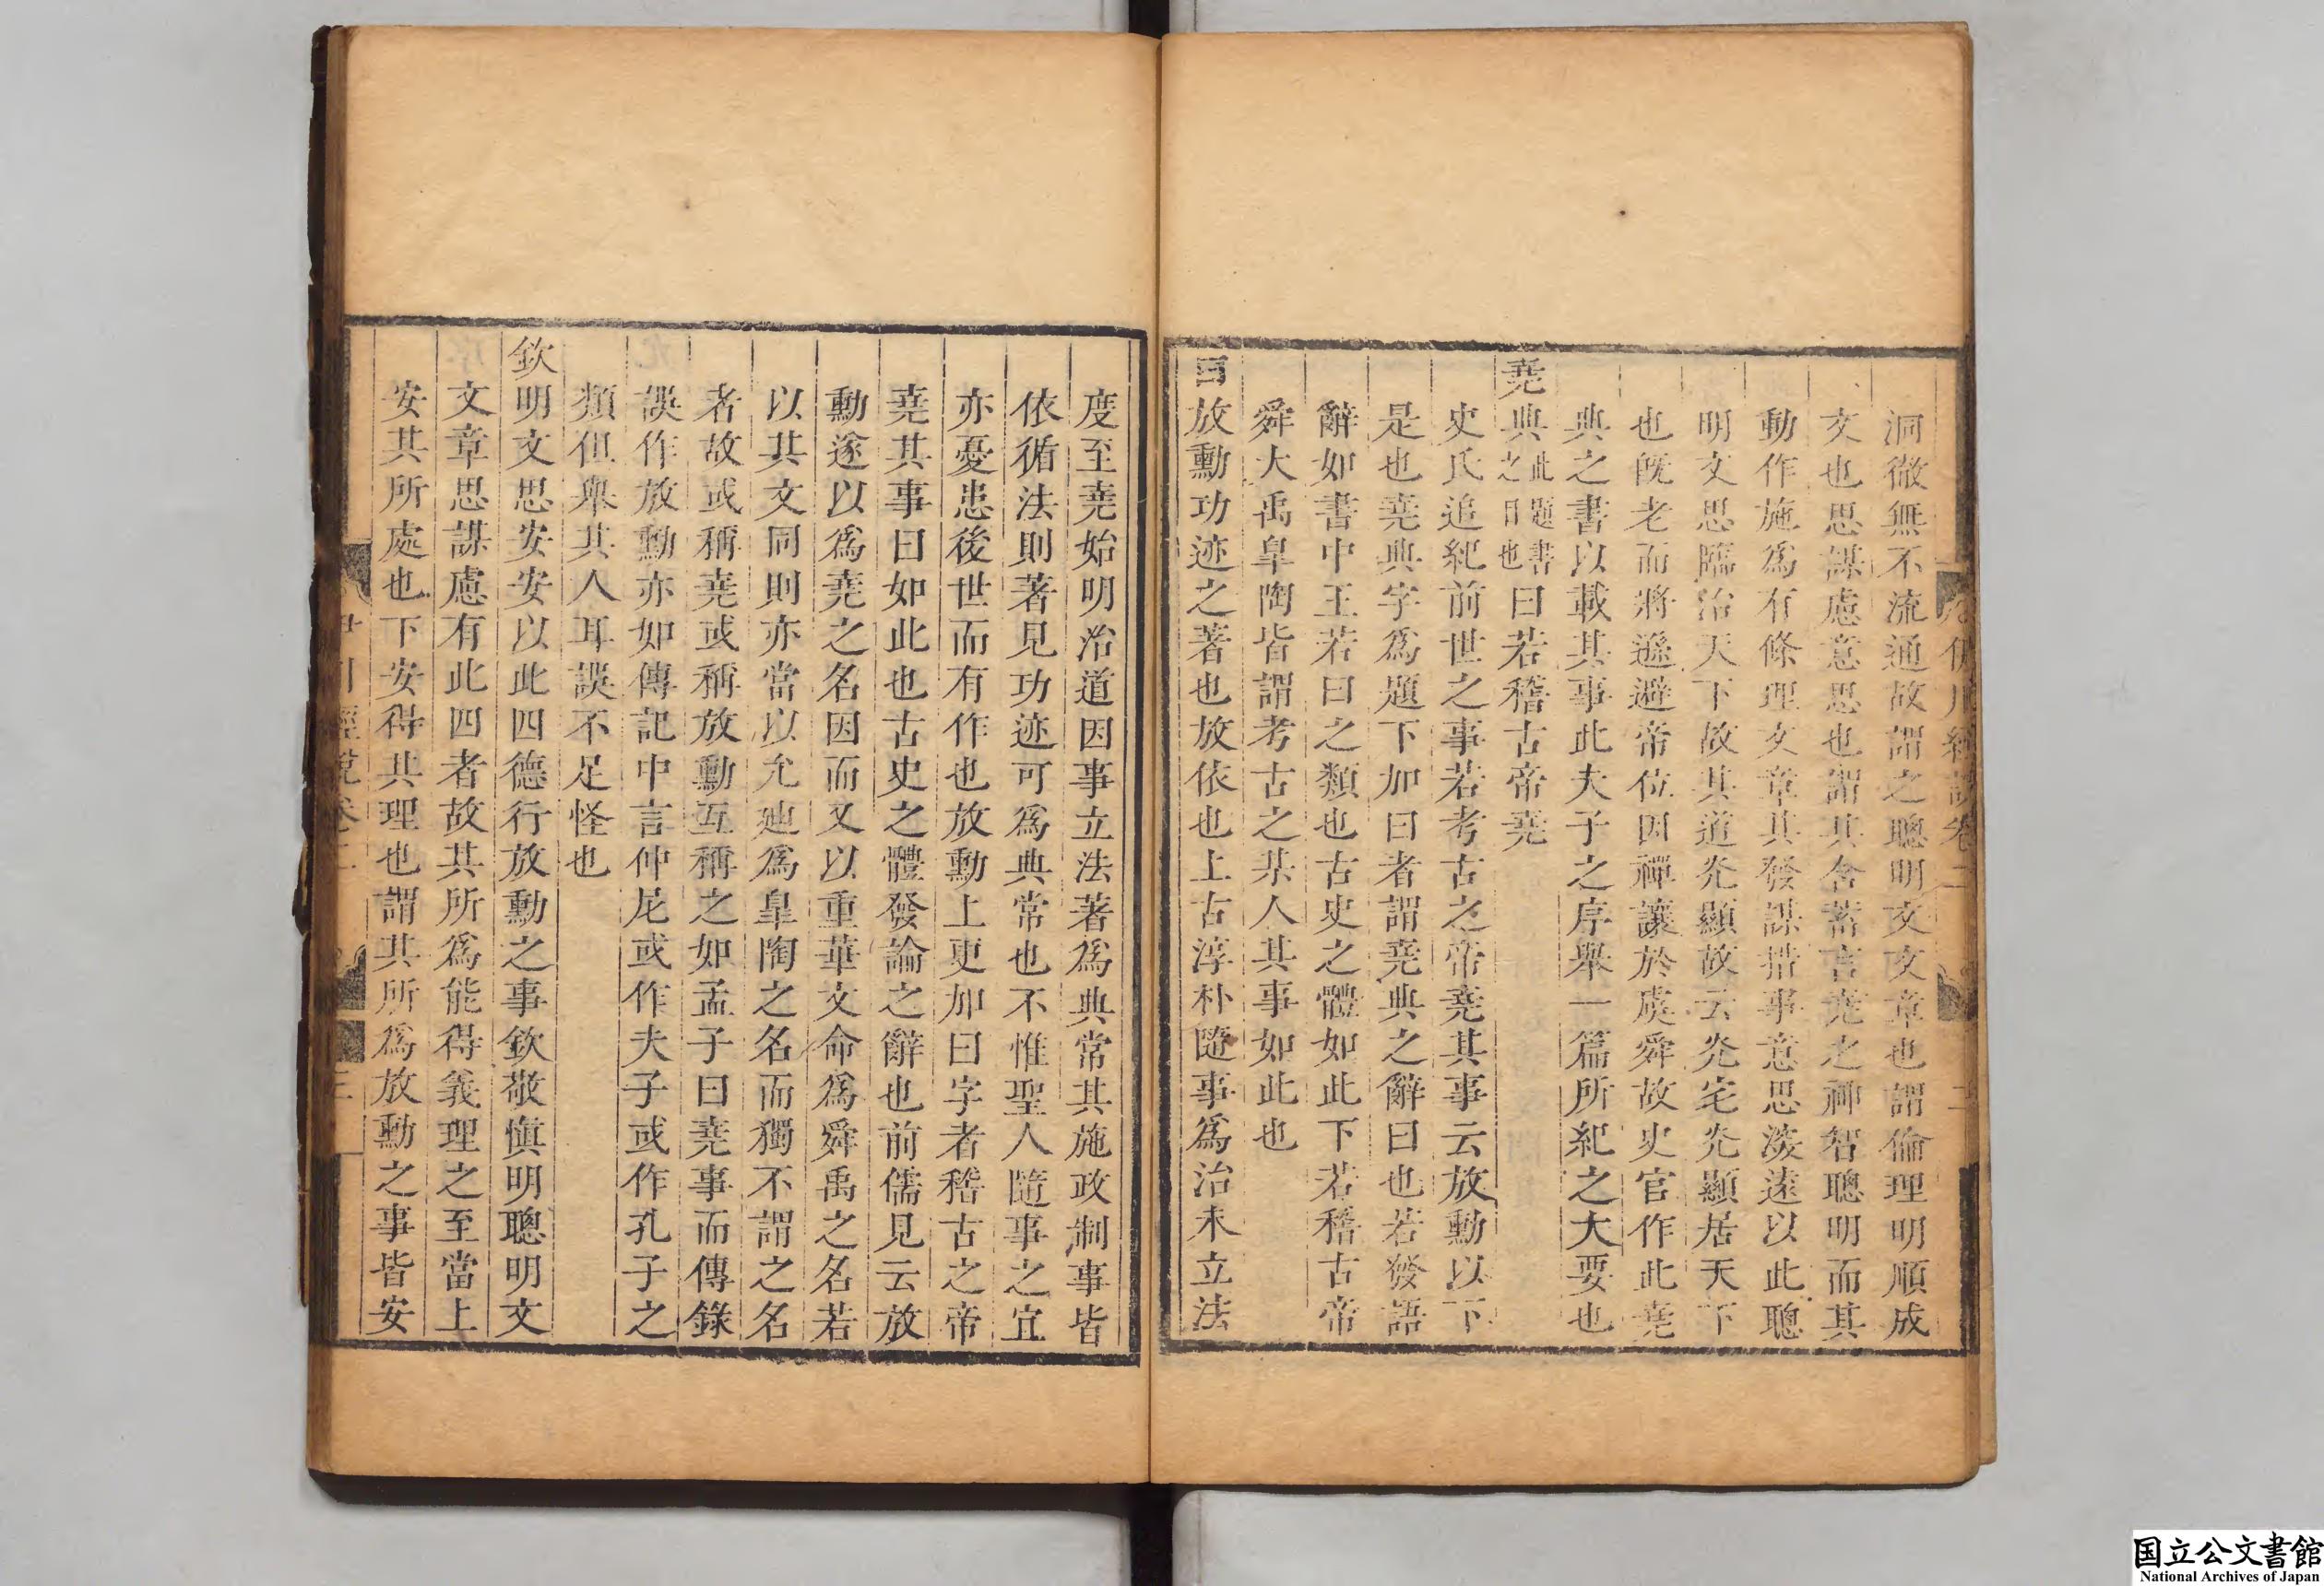 洞徹無不流通故謂之聰明文文章也謂倫理明順成
文也思謀慮意思也謂其含蓄言堯之神智聰明而其
動作施爲有條理文章其發謀措事意思深遠以此聰
明文思臨治天下故其道光顯故云光宅光顯居天下
也旣老而將遜避帝位因禪讓於虞舜故史官作此堯
典之書以載其事此夫子之序舉一篇所紀之大要也
堯典此題書之目也曰若稽古帝堯
史氏追紀前世之事若考古之帝堯其事云放勳以下
是也堯典字爲題下加曰者謂堯典之辭曰也若發語
辭如書中王若曰之類也古史之體如此下若稽古帝
舜大禹皐陶皆謂考古之某人其事如此也
曰放勳功迹之著也放依也上古淳朴隨事爲治未立法
度至堯始明治道因事立法著爲典常其施政制事皆
依循法則著見功迹可爲典常也不惟聖人隨事之宜
亦憂患後世而有作也放勳上更加曰字者稽古之帝
堯其事曰如此也古史之體發論之辭也前儒見云放
勳遂以爲堯之名因而又以重華文命爲舜禹之名若
以其文同則亦當以允廸爲皐陶之名而獨不謂之名
者故或稱堯或稱放勳互稱之如孟子曰堯事而傳錄
誤作放勳亦如傳記中言仲尼或作夫子或作孔子之
類但舉其人耳誤不足怪也
欽明文思安安以此四德行放勳之事欽敬愼明聰明文
文章思謀慮有此四者故其所爲能得義理之至當上
安其所處也下安得其理也謂其所爲放勳之事皆安
国立公文書館
National Archives of Japan